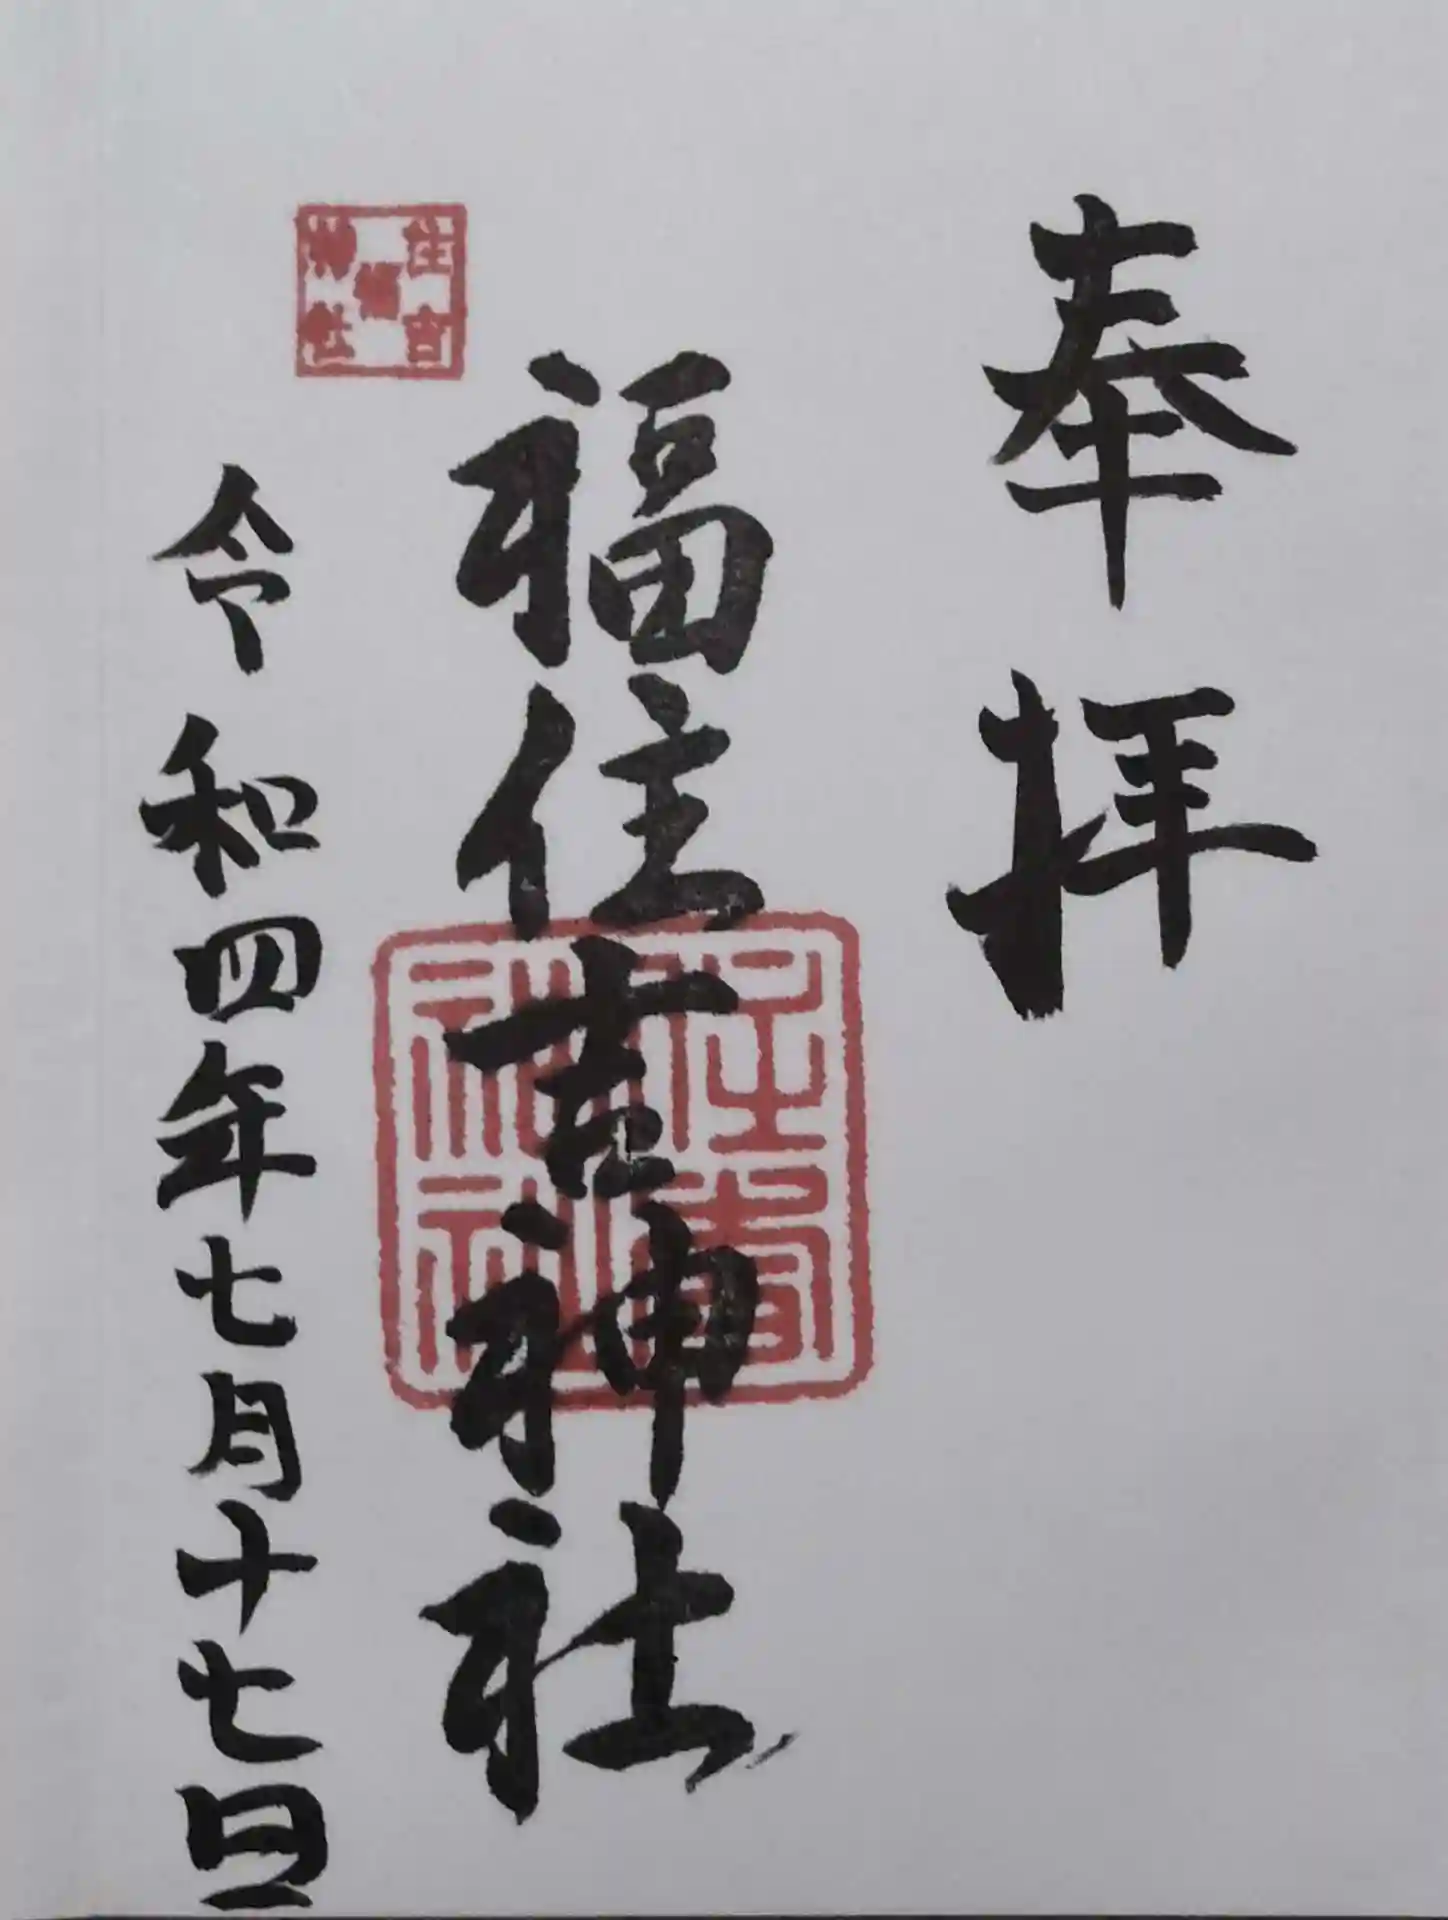 奉拝
福住吉神社
令和四年七月十七日
住吉
福
神社
住吉
神社